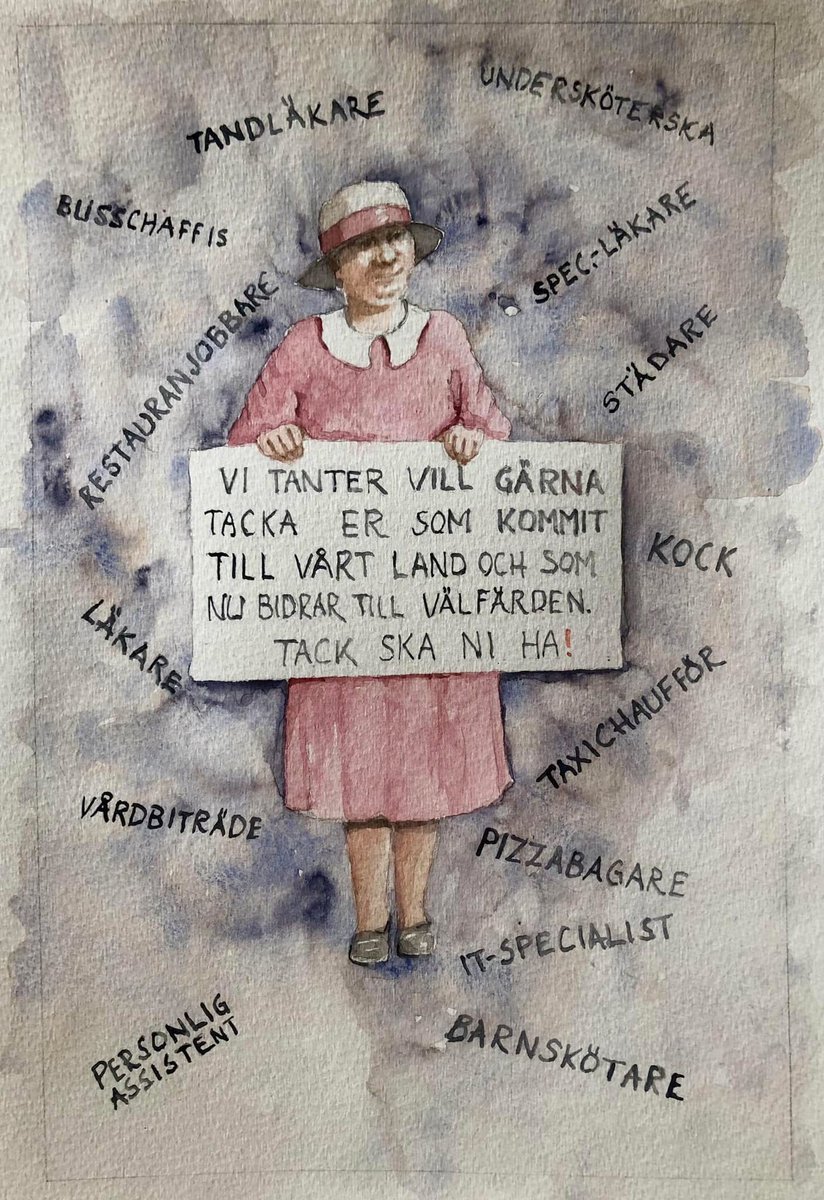 UNDERSKÖTERSKA
TANDLÄKARE
BUSSCHAFFIS
SPEC.-LÄKARE
RESTAURANJOBBARE
STÄDARE
VI TANTER VILL GÄRNA
TACKA ER SOM KOMMIT
TILL VÅRT LAND OCH SOM
NU BIDRAR TILL VÄLFÄRDEN.
TACK SKA NI HA!
KOCK
LÄKARE
TAXICHAUFFÖR
VÅRDBITRÄDE
PIZZABAGARE
IT-SPECIALIST
PERSONLIG
ASSISTENT
BARNSKÖTARE